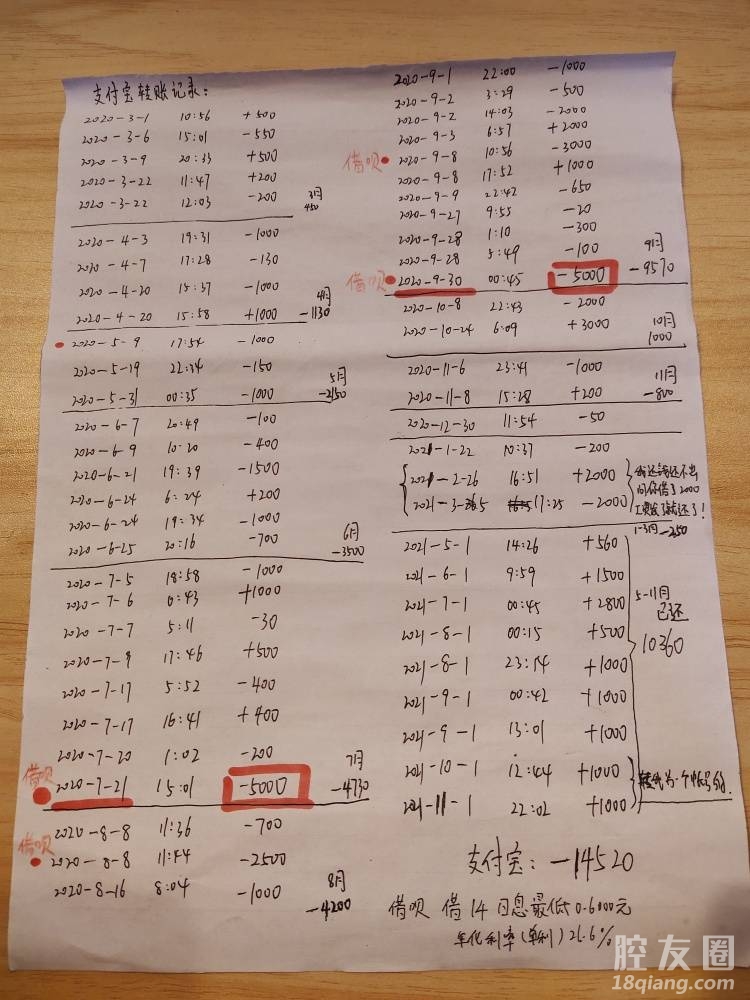 支付宝转账记录:
2020-3-1 10:56 +500
2020-3-6 15:01 -550
2020-3-9 20:33 +500
2020-3-22 11:47 +200
2020-3-22 12:03 -200
3月
450
2020-4-3 19:31 -1000
2020-4-7 17:28 -130
2020-4-20 15:37 -1000
2020-4-20 15:58 +1000
4月
-1130
2020-5-9 17:54 -1000
2020-5-19 22:34 -150
2020-5-31 00:35 -1000
5月
-2150
2020-6-7 20:49 -100
2020-6-9 10:20 -400
2020-6-21 19:39 -1500
2020-6-24 6:24 +200
2020-6-24 19:34 -1000
2020-6-25 20:16 -700
6月
-3500
2020-7-5 18:58 -1000
2020-7-6 0:43 +1000
2020-7-7 5:11 -30
2020-7-9 17:46 +500
2020-7-17 5:52 -400
2020-7-17 16:41 +400
2020-7-20 1:02 -200
借呗
2020-7-21 15:01 -5000
7月
-4730
2020-8-8 11:36 -700
借呗
2020-8-8 11:44 -2500
2020-8-16 8:04 -1000
8月
-4200
2020-9-1 22:00 -1000
2020-9-2 3:29 -500
2020-9-2 14:03 -2000
2020-9-3 6:57 +2000
借呗
2020-9-8 10:56 -3000
2020-9-8 17:52 +1000
2020-9-9 22:42 -650
2020-9-27 9:55 -20
2020-9-28 1:10 -300
2020-9-28 5:49 -100
借呗
2020-9-30 00:45 -5000
9月
-9570
2020-10-8 22:43 -2000
2020-10-24 6:09 +3000
10月
1000
2020-11-6 23:41 -1000
2020-11-8 15:28 +200
11月
-800
2020-12-30 11:54 -50
2021-1-22 10:37 -200
2021-2-26 16:51 +2000
2021-3-5 17:25 -2000
还不出
问你借了2000
还了!
1-3月 -250
2021-5-1 14:26 +560
2021-6-1 9:59 +1500
2021-7-1 00:45 +2800
2021-8-1 00:15 +500
2021-8-1 23:14 +1000
2021-9-1 00:42 +1000
2021-9-1 13:01 +1000
2021-10-1 12:44 +1000
2021-11-1 22:02 +1000
5-11月
已还
10360
支付宝: -14520
借呗 借14 日息最低0.6000元
年化利率(单利)21.6%
腔友圈
18qiang.com